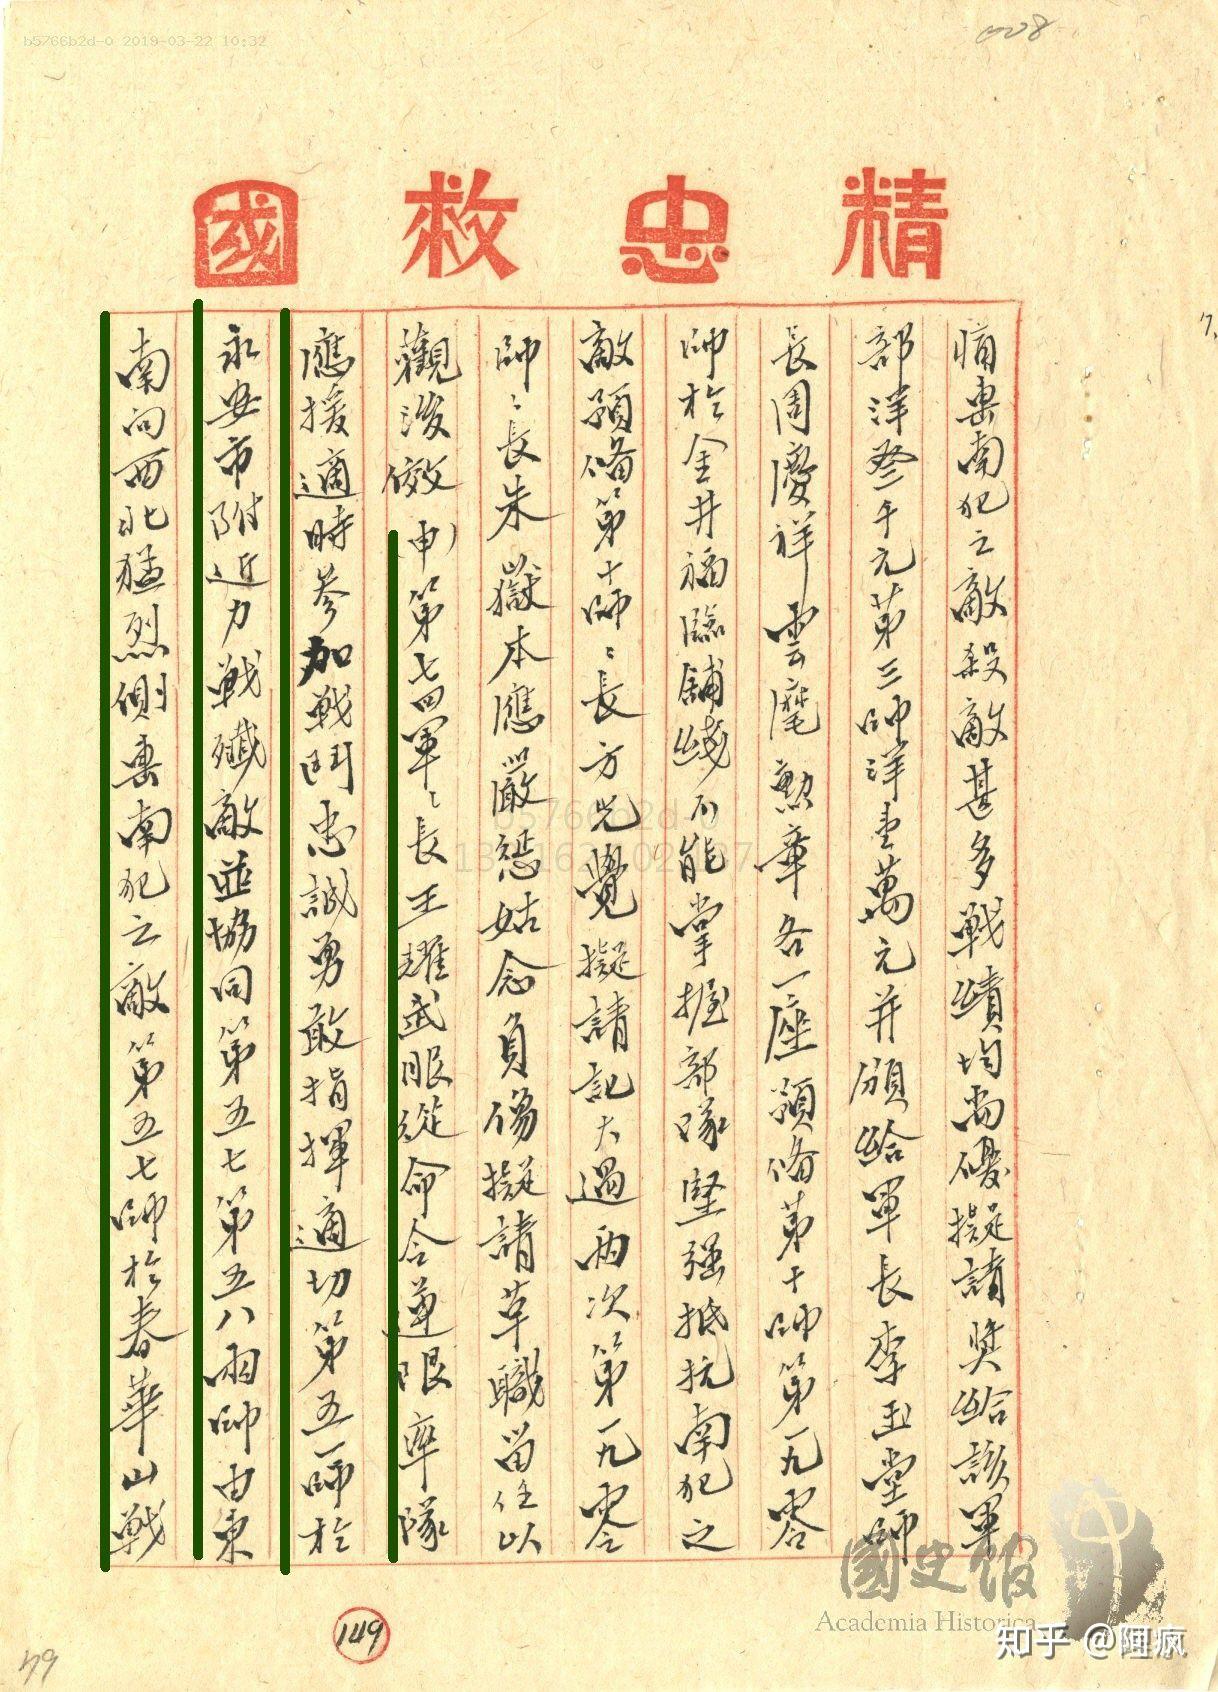 b5766b2d-0 2019-03-22 10:32
008
精忠救國
痛擊南犯之敵殺敵甚多戰績均尚優擬請奬給該軍
部洋叁千元第三師洋壹萬元并頒給軍長李玉堂師
長周慶祥雲麾勲章各一座預備第十師第一九零
師於金井福臨舖綫不能掌握部隊堅强抵抗南犯之
敵預備第十師〻長方先覺擬請記大過兩次第一九零
師〻長朱嶽本應嚴懲姑念負傷擬請革職留任以
觀後效(申)第七四軍〻長王耀武服從命令遵限率隊
應援適時參加戰鬥忠誠勇敢指揮適切第五一師於
永安市附近力戰殲敵並協同第五七第五八兩師由東
南向西北猛烈側擊南犯之敵第五七師於春華山戰
b5766b2d-0
國史館
Academia Historica
149
知乎 @阿疯